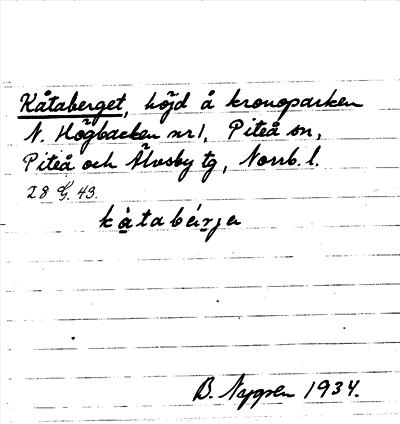 Kåtaberget, höjd å kronoparken
N. Högbacken nr 1, Piteå sn,
Piteå och Älvsby tg, Norrb. l.
28 G. 43.
kå̀tabérjə
B. Nygren 1934.